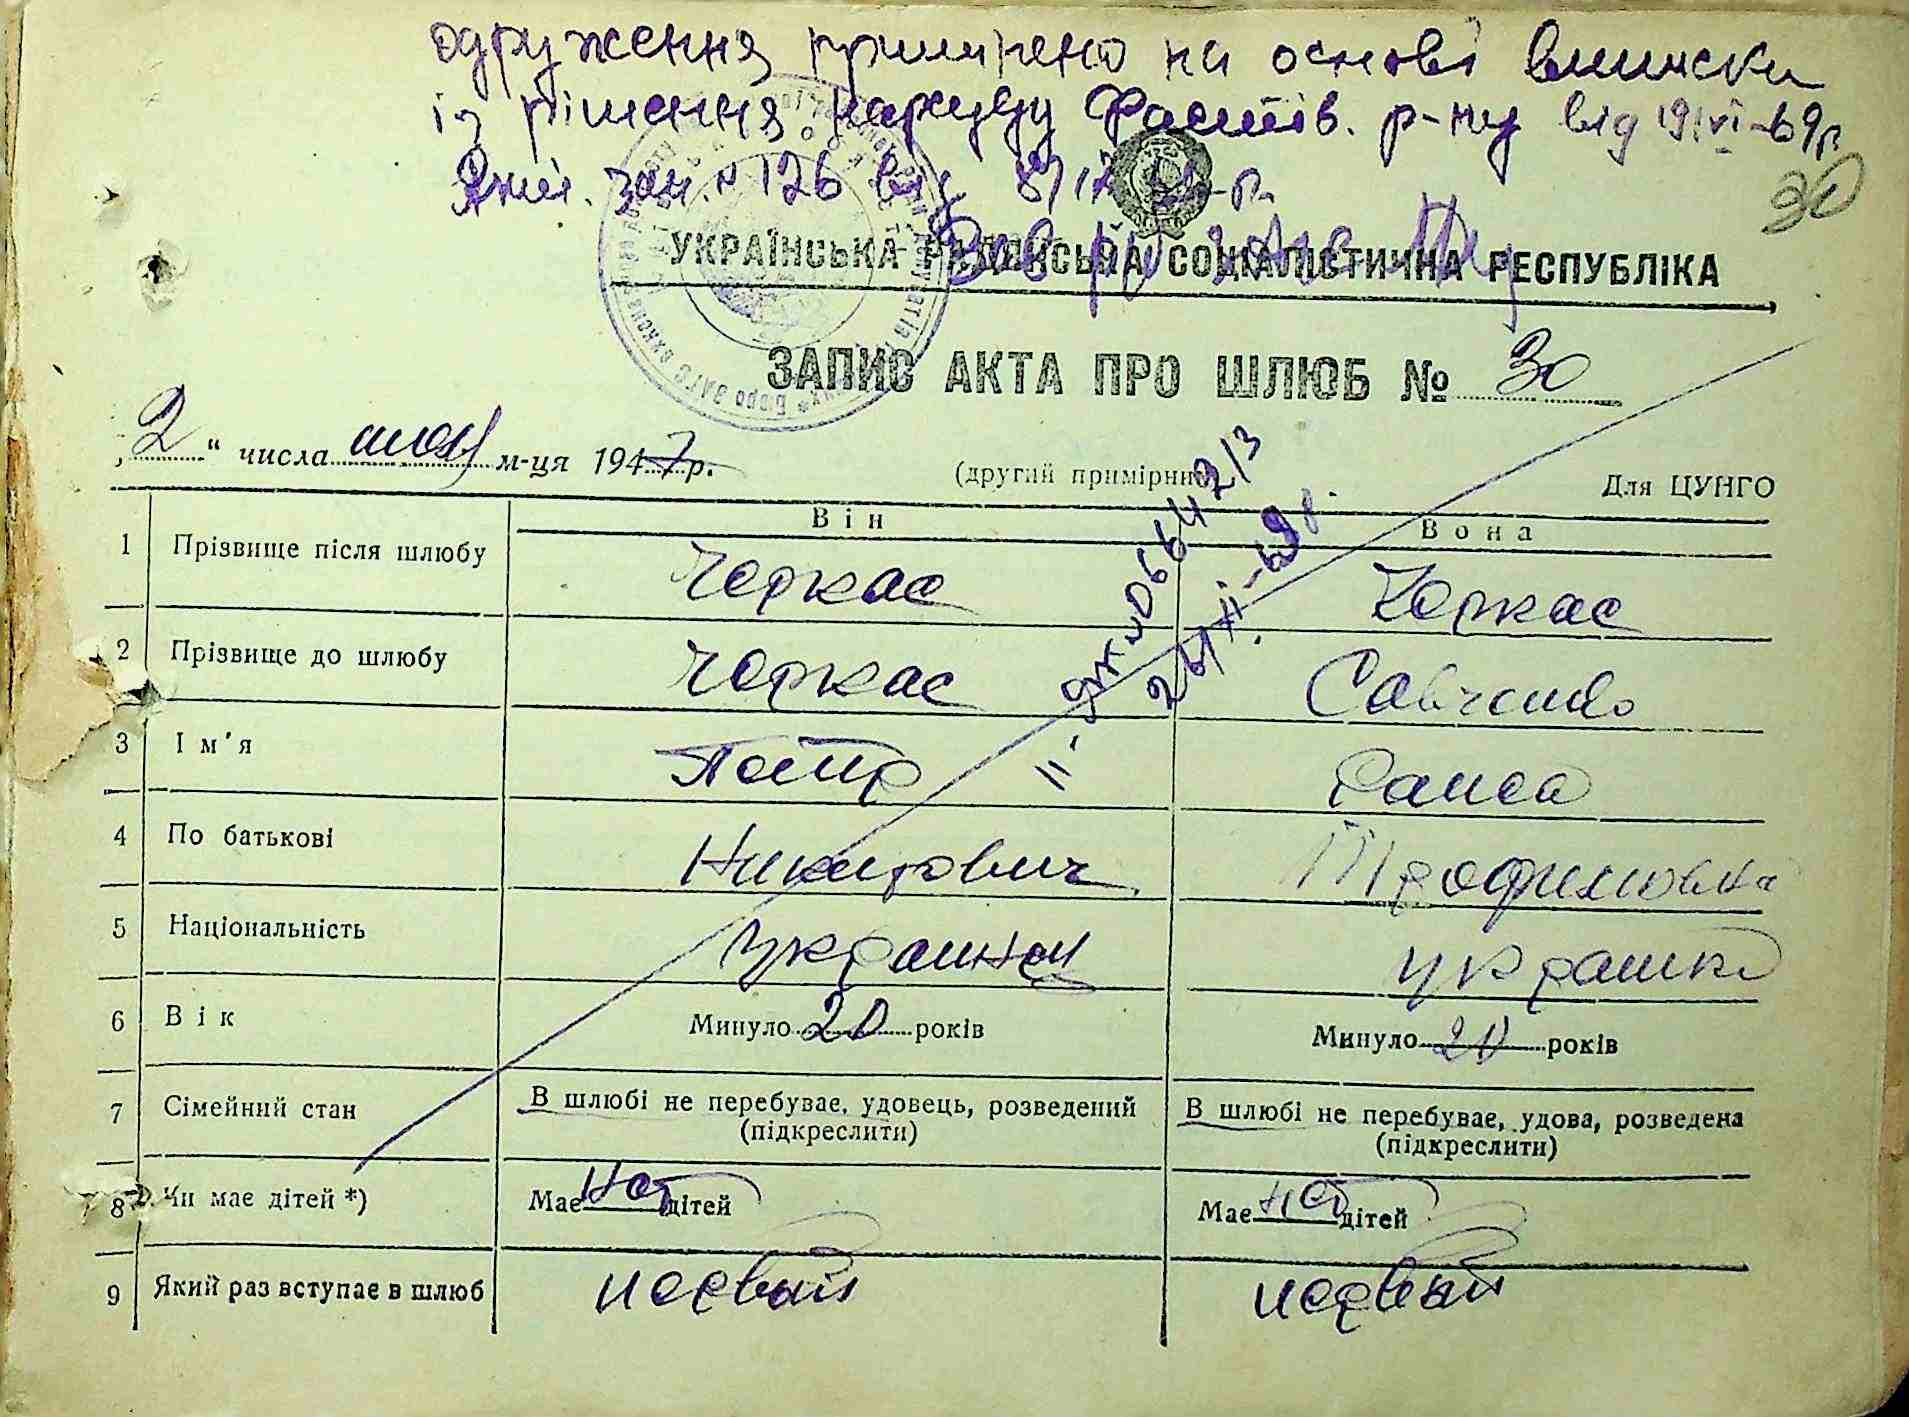 одруження припинено на основі виписки
із рішення нарсуду Фастів. р-ну від 19/VI-69р
Акт. зап. № 126 від
30
УКРАЇНСЬКА РАДЯНСЬКА СОЦІАЛІСТИЧНА РЕСПУБЛІКА
ЗАПИС АКТА ПРО ШЛЮБ № 30
„2“ числа июля м-ця 1947 р.
(другий примірник)
Для ЦУНГО
Він
Вона
1 Прізвище після шлюбу Черкас Черкас
2 Прізвище до шлюбу Черкас Савченко
3 Ім'я Петр Раиса
4 По батькові Никитович Трофимовна
5 Національність Украинец украинка
6 Вік Минуло 20 років Минуло 20 років
7 Сімейний стан В шлюбі не перебуває, удовець, розведений В шлюбі не перебуває, удова, розведена
(підкреслити) (підкреслити)
8 Чи має дітей *) Має нет дітей Має нет дітей
9 Який раз вступає в шлюб первый первый
26/XII-69р.